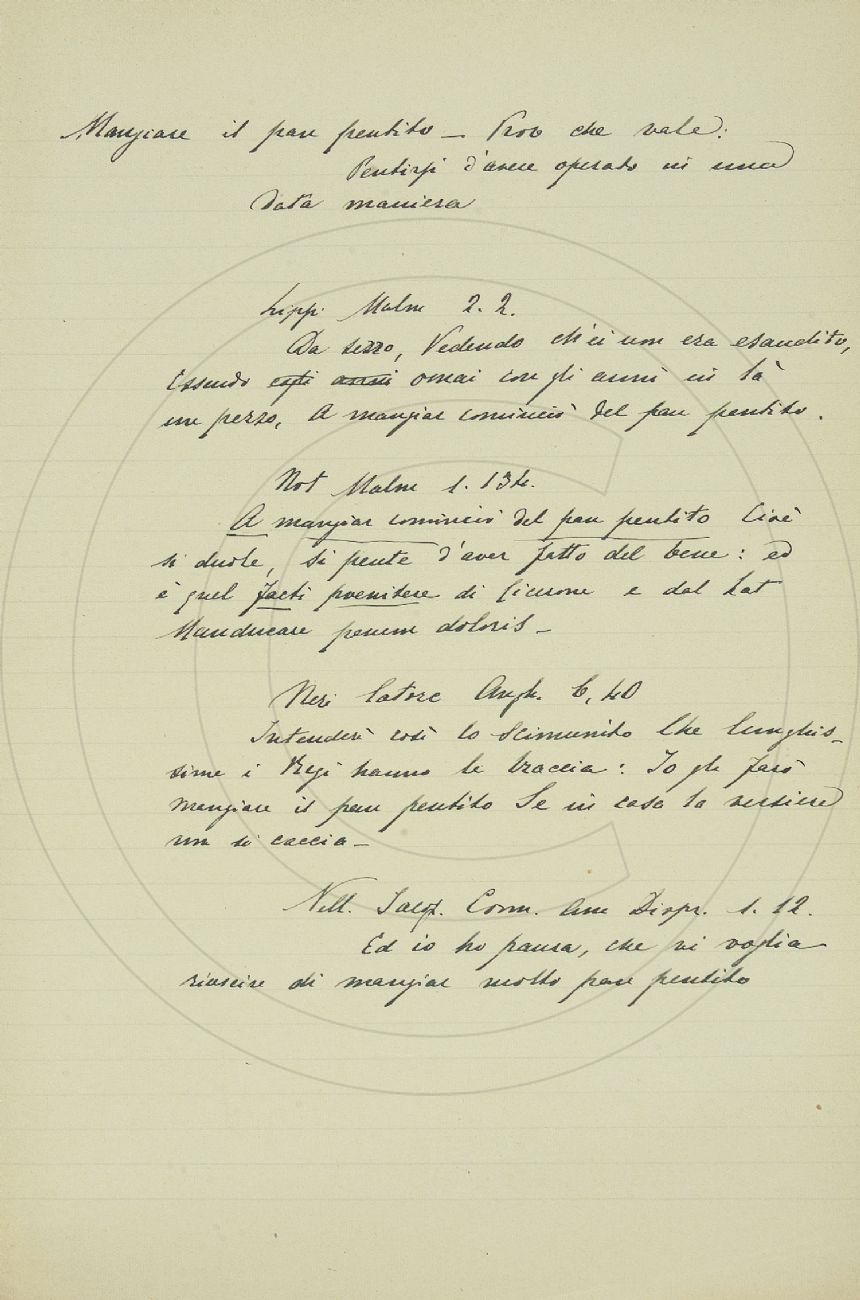 Mangiare il pan pentito — Prov che vale:
Pentirsi d'avere operato in una
data maniera
Lippi Malm 2. 2.
Da sezzo, Vedendo ch'ei non era esaudito,
Essendo omai con gli anni in là
un pezzo, A mangiar cominciò del pan pentito.
Not Malm 1. 134.
A mangiar cominciò del pan pentito Cioè
si duole, si pente d'aver fatto del bene: ed
è quel facti poenitere di Cicerone e dal Lat
Manducare panem doloris —
Neri Satore 6, 40
Intenderà così lo scimunito Che lunghis-
sime i Regi hanno le braccia: Io gli farò
mangiare il pan pentito Se in casa la versiera
non si caccia —
Nell. Jacop. Com. 1. 12.
Ed io ho paura, che vi voglia
riuscire di mangiar molto pan pentito